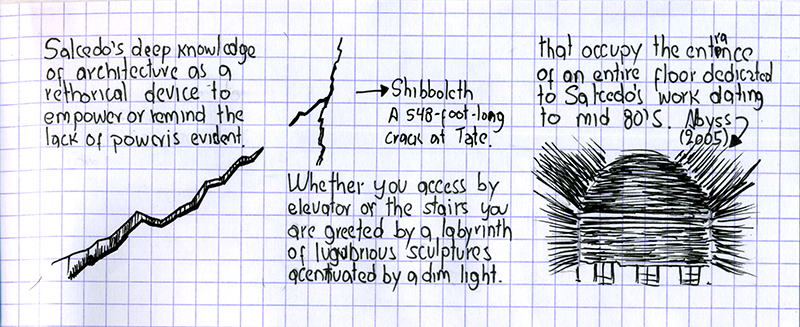 Salcedo's deep knowledge
of architecture as a
rethorical device to
empower or remind the
lack of power is evident.
Shibboleth
A 548-foot-long
crack at Tate.
Whether you access by
elevator or the stairs you
are greeted by a labyrinth
of lugubrious sculptures
acentuated by a dim light.
that occupy the entrance
of an entire floor dedicated
to Salcedo's work dating
to mid 80's. Abyss
(2005)